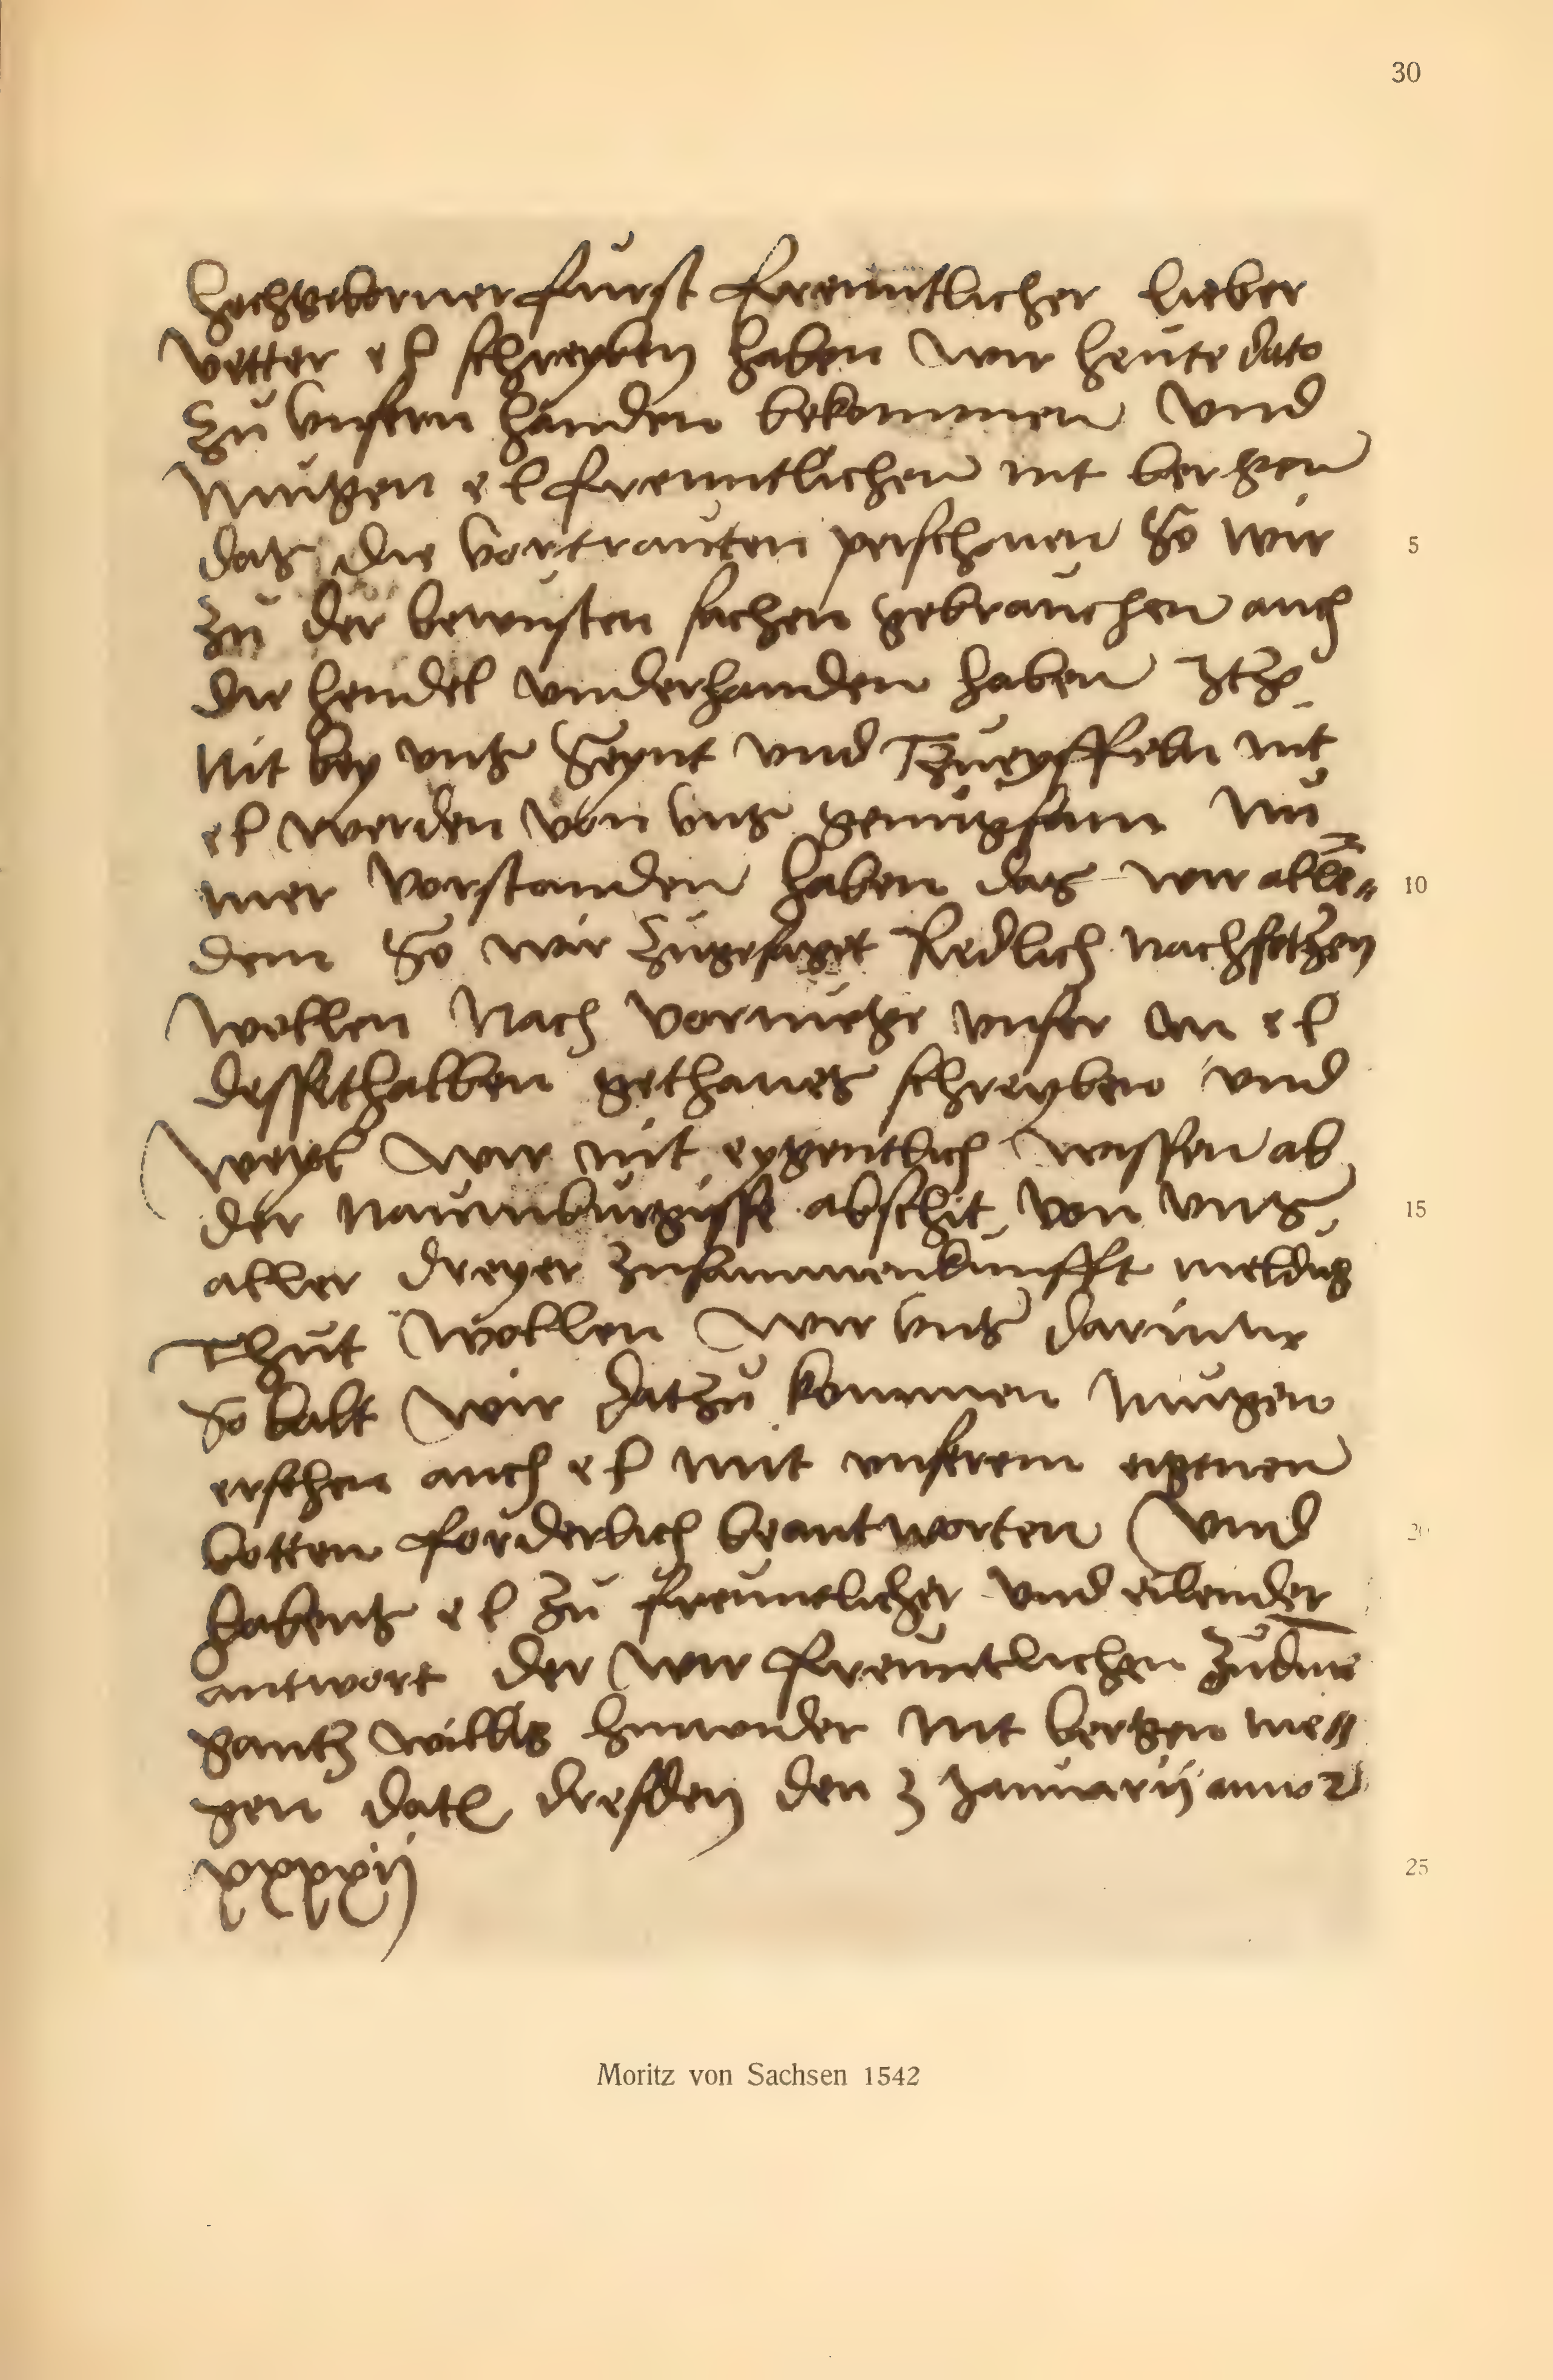 30
Hochgeborner furst freuntlicher lieber
vetter e l schreyben haben wir heute dato
zu unsern handen bekommen und
mugen e l freuntlichen nit bergen
das die vortrauten perschonen So wir
zu der bewusten sachen gebrauchen auch
die hendel underhanden haben itz
Nit bey uns Seynt und Tzweyffeln nit
e l werden von uns genugsam nu
mer vorstanden haben das wir alle„
dem So wir zugesaget Redlich nachsetzen
wollen Nach vormuge unser an e l
dessethalben gethanes schreyben und
weyl wir nit eygentlich wissen ab
der naumburgisse abschit von uns
aller dreyer zusammenkunfft meldug
Thut wollen wir uns darinne
So balt wir datzu kommen mugen
ersehen auch e l mit unserem eigenen
botten forderlich beantworten und
habens e l zu freuntlicher und eilender
antwort der wir freuntlichen zu dine
gantz willig hinwider nit bergen me„
gen dat dresden den 3 Januarii anno
xxxxii
5
10
15
20
25
Moritz von Sachsen 1542